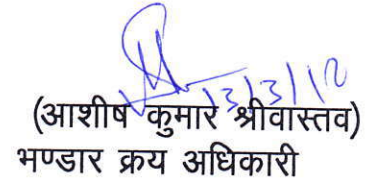 13/3/12
(आशीष कुमार श्रीवास्तव)
भण्डार क्रय अधिकारी